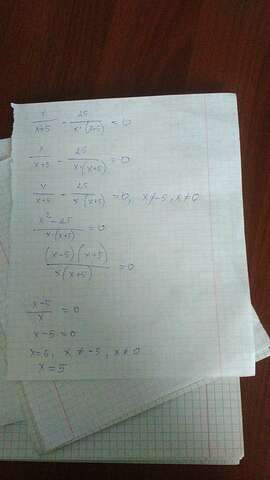 x/(x+5) - 25/(x·(x+5)) = 0
x/(x+5) - 25/(x·(x+5)) = 0
x/(x+5) - 25/(x·(x+5)) = 0, x≠-5, x≠0
(x²-25)/(x·(x+5)) = 0
(x-5)(x-5)/(x(x+5)) = 0
(x-5)/x = 0
x-5=0
x=5, x≠-5, x≠0
x=5